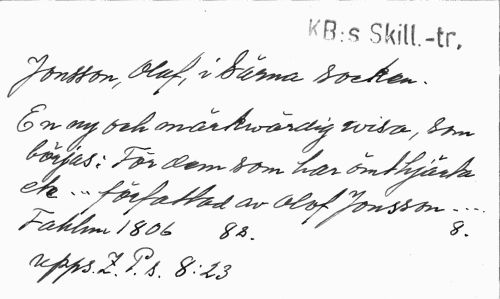 KB:s Skill.-tr.
Jonsson, Olof, i Särna socken.
En ny och märkwärdig wisa, som
börjas: För dem som har ömt hjärta
etc ... författad av Olof Jonsson ....
Fahlun 1806 8s. 8.
upps. Z. P. s. 8:23